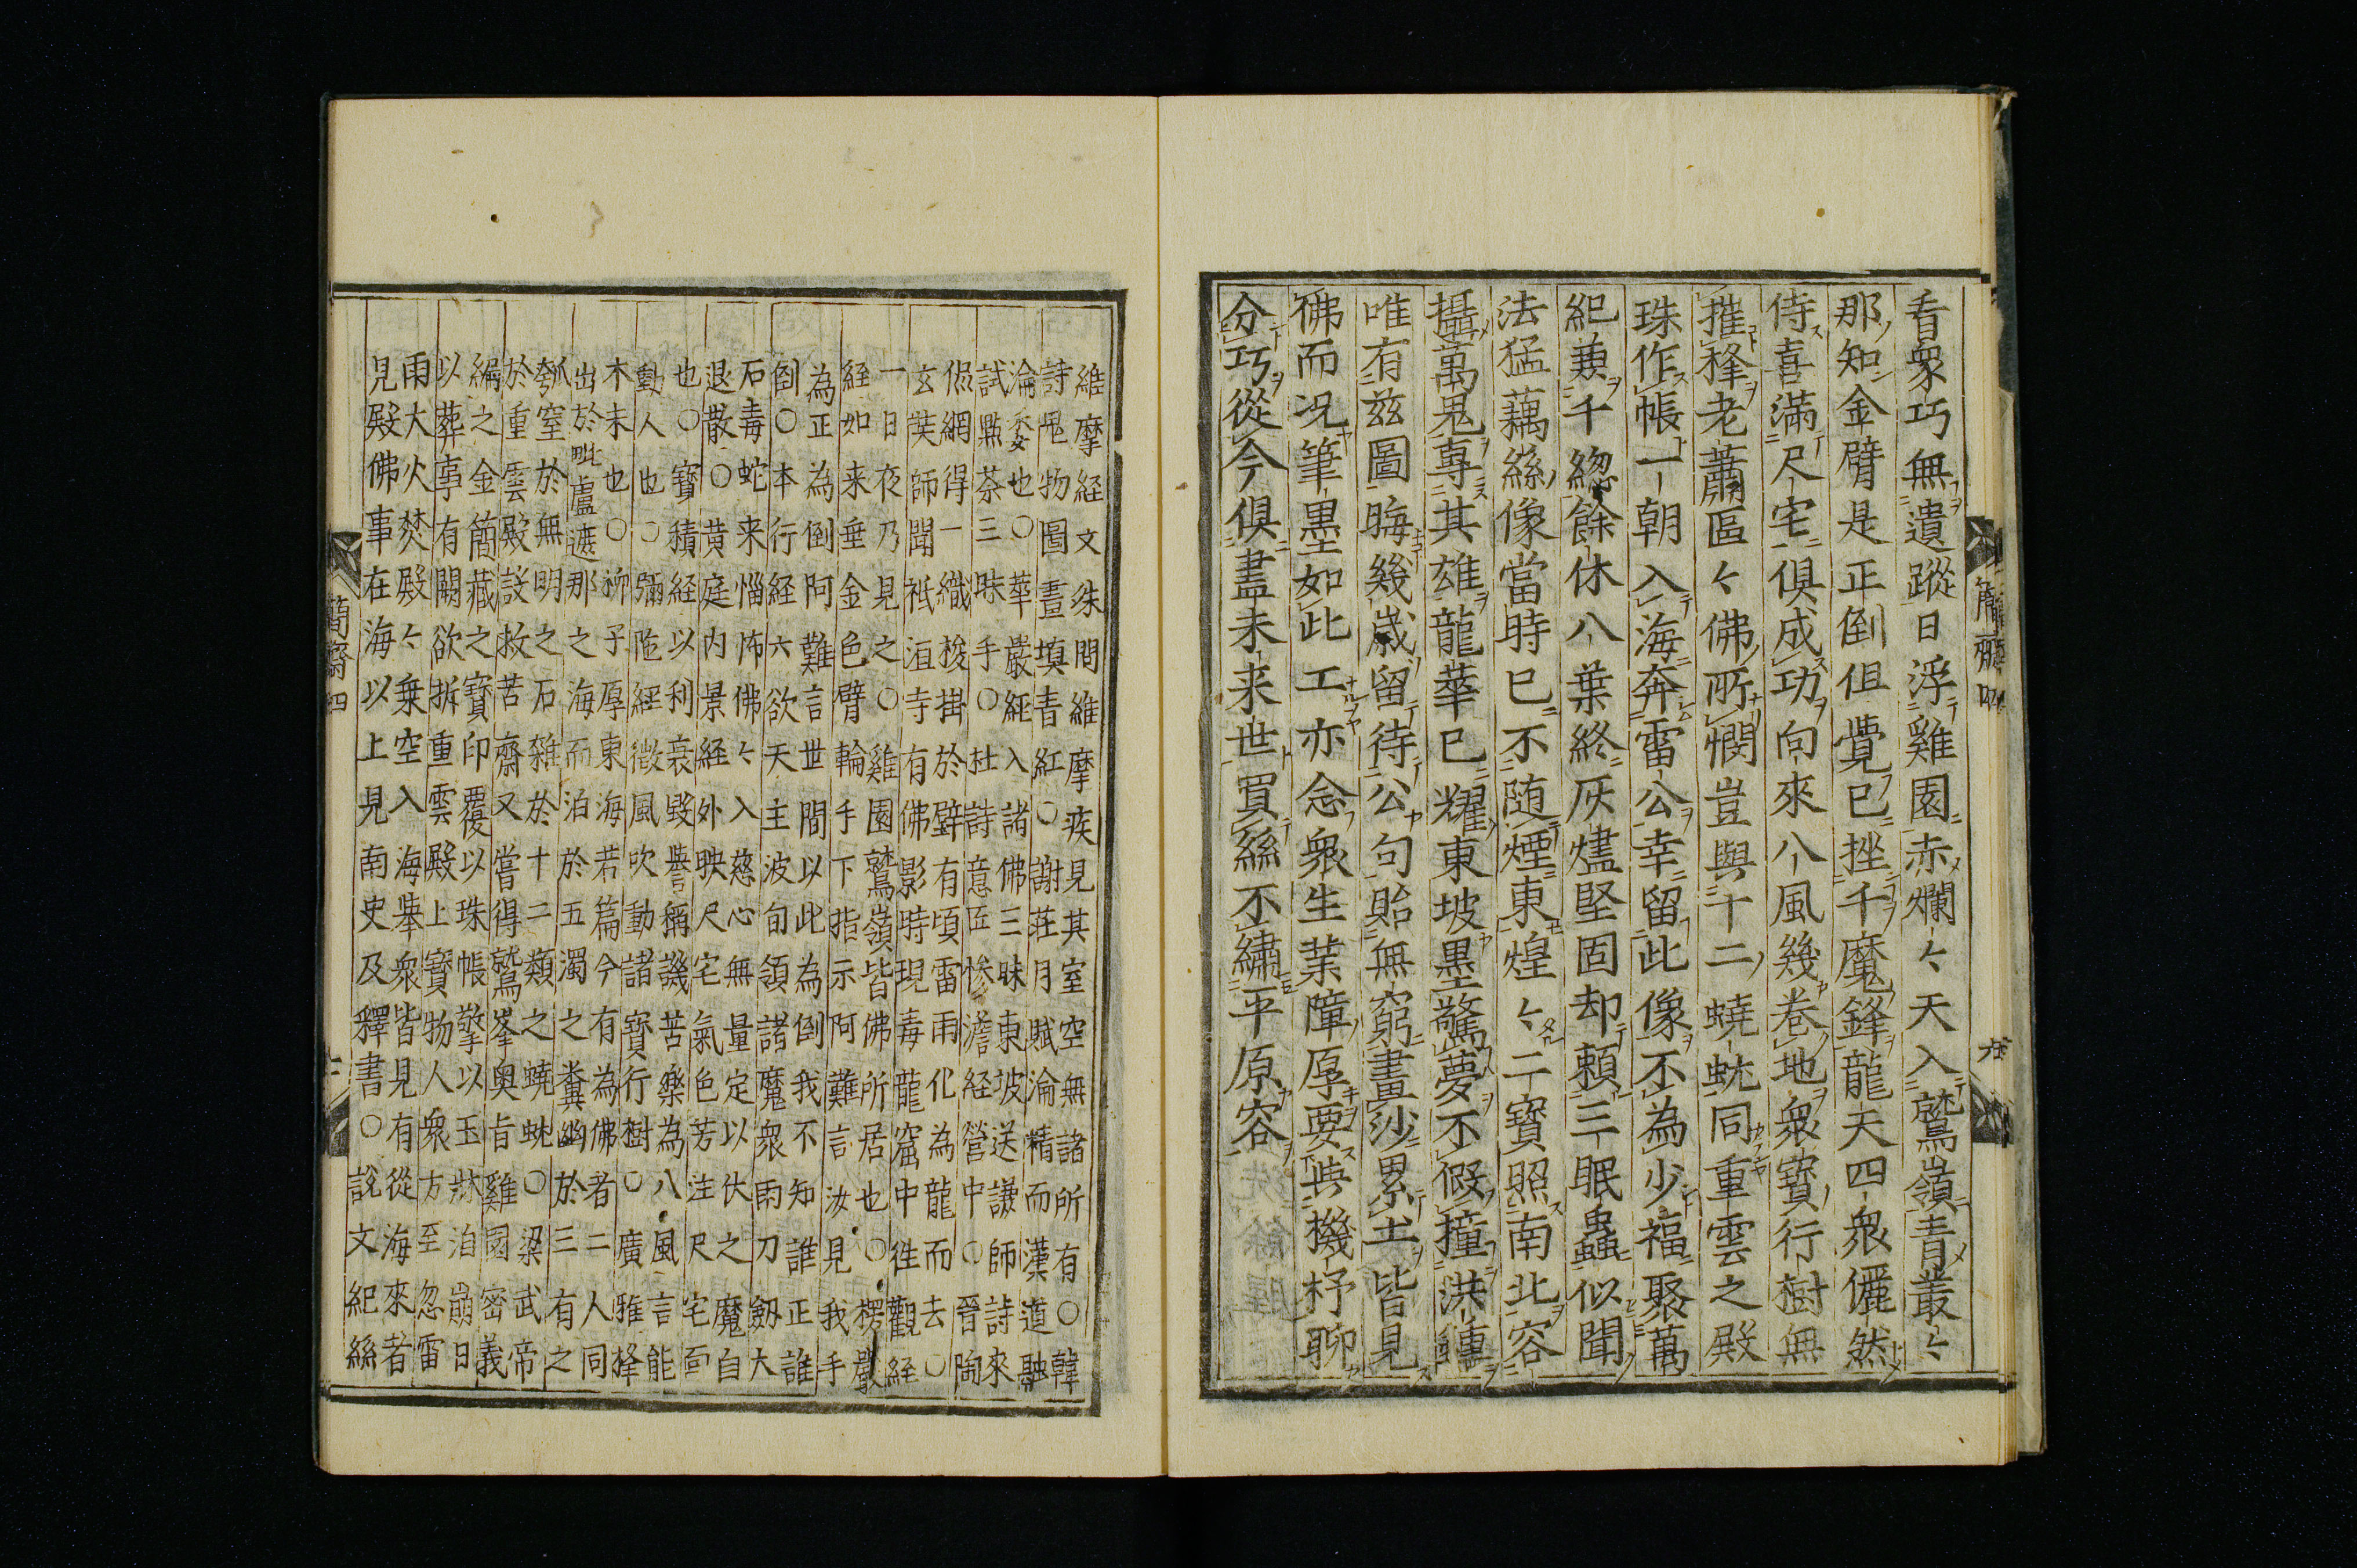 看衆巧無遺蹤日浮雞園赤爛々天入鷲嶺青叢々
那知金臂是正倒但覺已挫千魔鋒龍天四衆儼然
侍喜滿尺宅俱成功向來八風幾卷地衆寶行樹無
摧秾老蕭區々佛所憫豈與十二蟯蚘同重雲之殿
珠作帳一朝入海奔雷公幸留此像不為少福聚萬
紀兼千緫餘休八葉終灰燼堅固却頼三眠蟲似聞
法猛藕絲像當時已不随煙東煌々二寶照南北容
攝萬鬼專其雄龍華已耀東坡墨驚夢不假撞洪鍾
唯有兹圖晦幾歳留待公句貽無窮畫沙累土皆見
佛而况筆墨如此工亦念衆生業障厚要與機杼聊
分巧從今俱盡未来世買絲不繡平原容
簡齋四
維摩経文殊問維摩疾見其室空無諸所有○韓
詩鬼物圖畫填青紅○謝莊月賦淪精而漢道融
淪委也○華嚴經入諸佛三昧東坡送謙師詩來
試點茶三昧手○杜詩意匠惨澹経營中○晉陶
侃網得一織梭掛於壁有頃雷雨化為龍而去○
玄奘師聞祇洹寺有佛影時現毒龍窟中徃觀経
一日夜乃見之○雞園鷲嶺皆佛所居也○楞嚴
経如来垂金色臂輪手下指示阿難言汝見我手
為正為倒阿難言世間以此為倒我不知誰正誰
倒○本行経六欲天主波旬領諸魔衆雨刀劔大
石毒蛇来惱怖佛々入慈心無量定以伏之魔自
退散○黄庭内景経外映尺宅氣色芳注尺宅面
也○寶積経以利衰毀譽稱譏苦樂為八風言能
動人也○彌陁経微風吹動諸寶行樹○廣雅㭋
木未也○栁子厚東海若篇今有為佛者二人同
出於毗盧遮那之海而泊於五濁之糞幽於三有之
瓠窒於無明之石雜於十二類之蟯蚘○梁武帝
於重雲殿設救苦齋又嘗得鷲峯奥旨雞園密義
編之金簡藏之寶印覆以珠帳擎以玉牀泊崩日
以葬事有闕欲拆重雲殿上寶物人衆方至忽雷
雨大火焚殿々乗空入海舉衆皆見有從海來者
見殿佛事在海以上見南史及釋書○說文紀絲
簡齋四